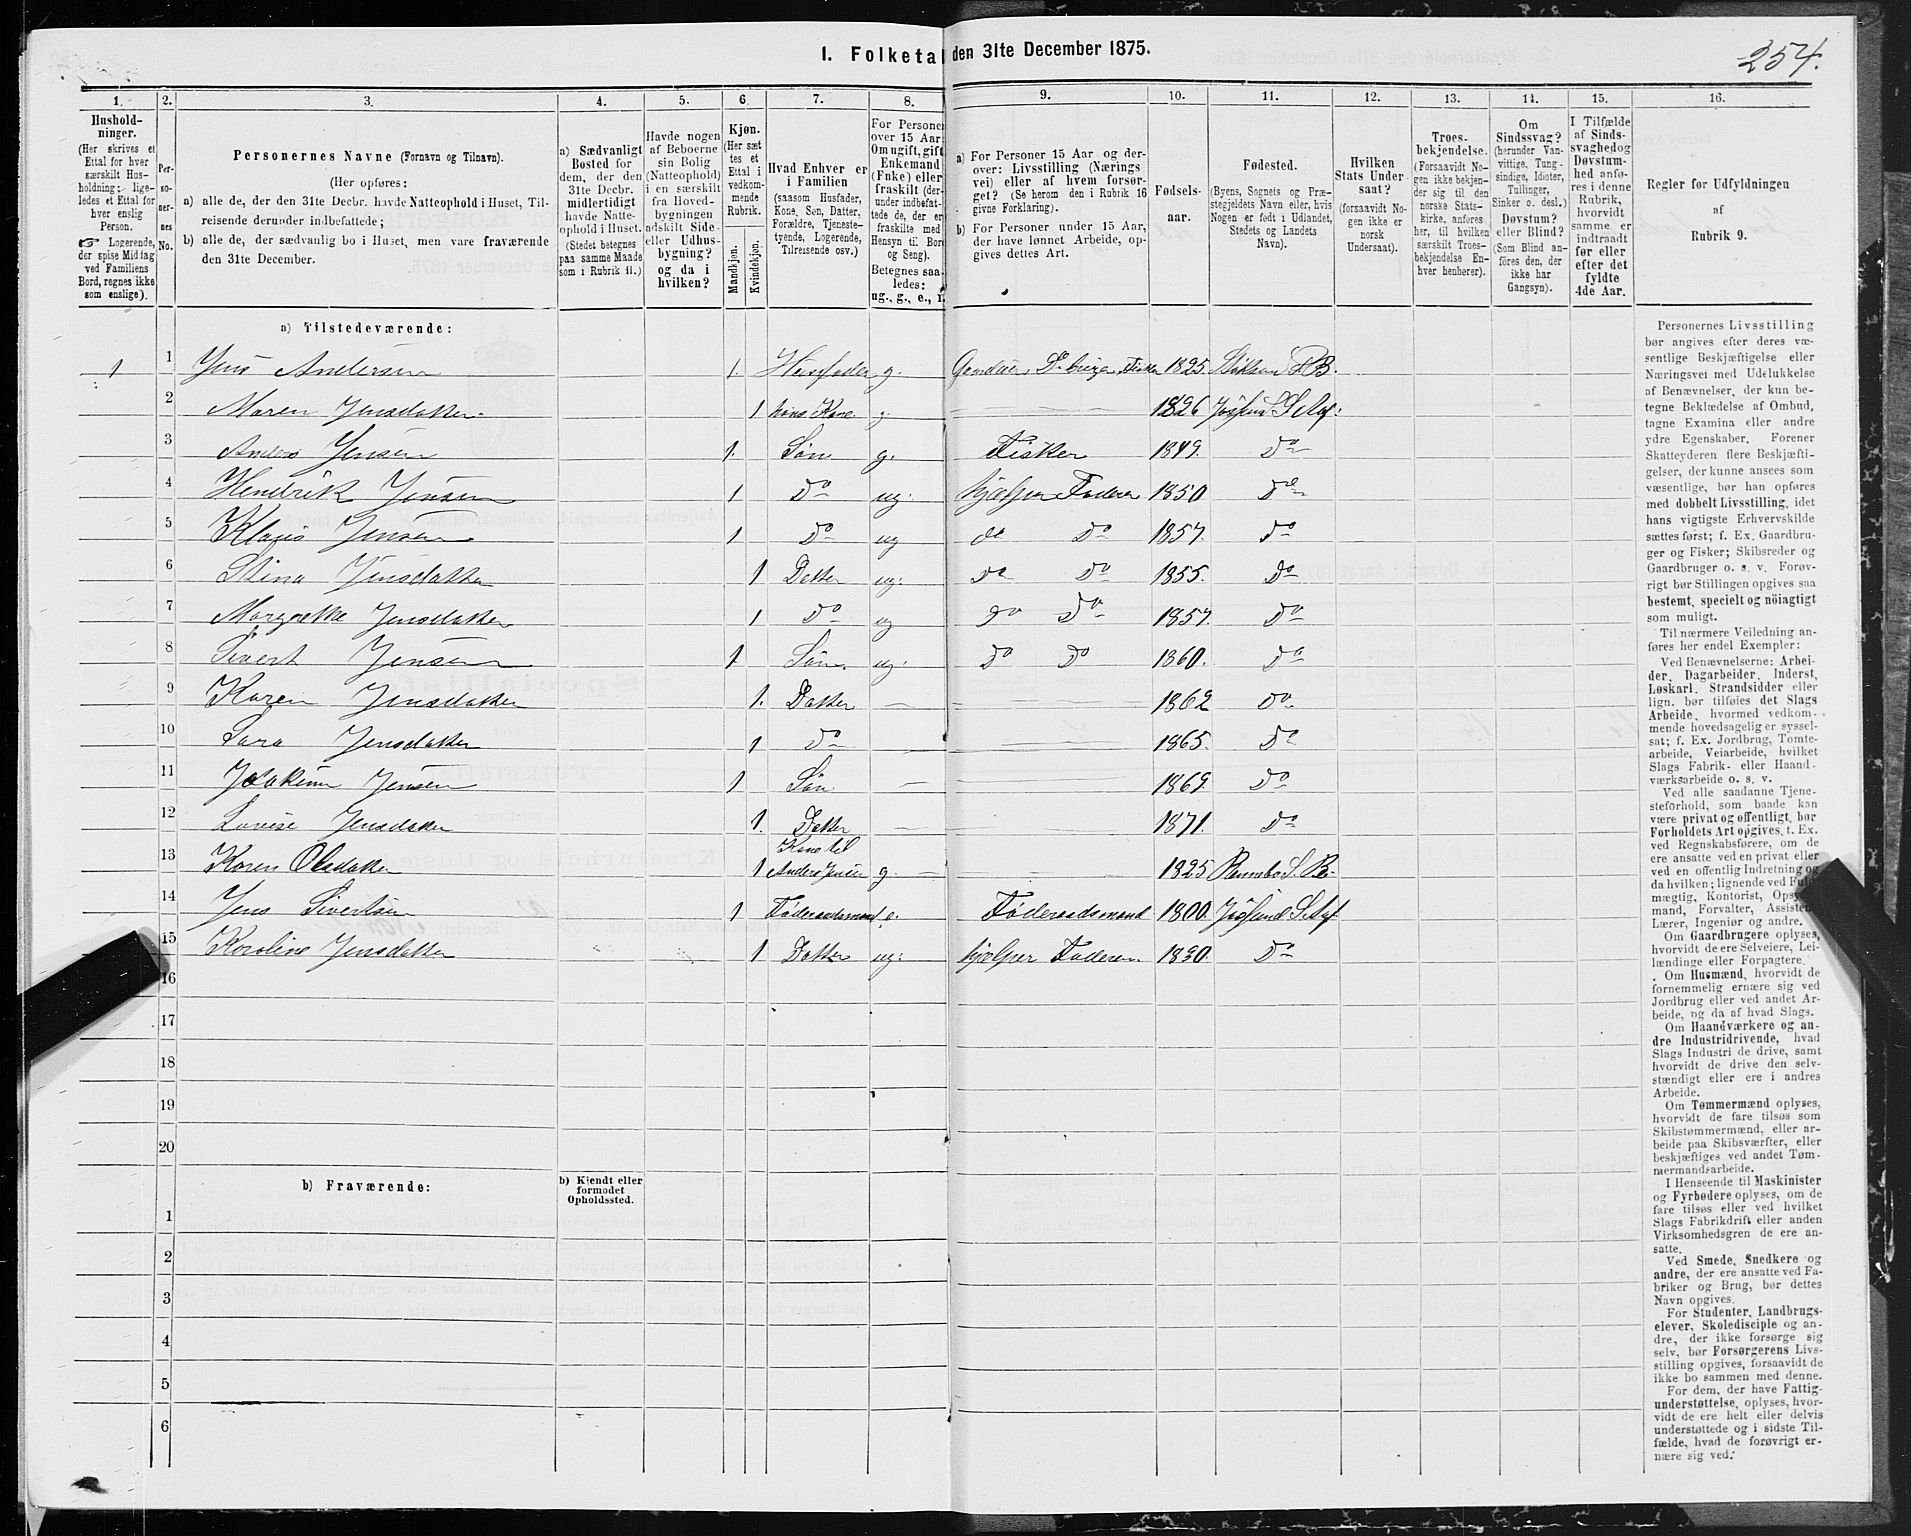 I. Folketal den 31te December 1875.
254.
1. 2. 3. 4. 5. 6. 7. 8. 9. 10. 11. 12. 13. 14. 15. 16.
Hushold-
ninger.
(Her skrives et
Ettal for hver
særskilt Hus-
holdning; lige-
ledes et Ettal for
hver enslig
Person.
☞ Logerende,
der spise Middag
ved Familiens
Bord, regnes ikke
som enslige).
Per-
so-
ner-
nes
No.
Personernes Navne (Fornavn og Tilnavn).
(Her opføres:
a) alle de, der den 31te Decbr. havde Natteophold i Huset, Til-
reisende derunder indbefattede;
b) alle de, der sædvanlig bo i Huset, men vare fraværende
den 31te December.
a) Sædvanligt
Bosted for
dem, der den
31te Decbr.
midlertidigt
havde Natte-
ophold i Huset.
(Stedet betegnes
paa samme Maade
som i Rubrik 11.)
Havde nogen
af Beboerne
sin Bolig
(Natteophold)
i en særskilt
fra Hoved-
bygningen
adskilt Side-
eller Udhus-
bygning?
og da i
hvilken?
Kjøn.
(Her sæt-
tes et
Ettal i
vedkom-
mende
Rubrik.
Mandkjøn.
Kvindekjøn.
Hvad Enhver er
i Familien
(saasom Husfader,
Kone, Søn, Datter,
Forældre, Tjeneste-
tyende, Logerende,
Tilreisende osv.)
For Personer
over 15 Aar:
Om ugift, gift,
Enkemand
(Enke) eller
fraskilt (der-
under indbefat-
tede de, der er
fraskilte med
Hensyn til Bord
og Seng).
Betegnes saa-
ledes:
ug., g., e., f.
a) For Personer 15 Aar og der-
over: Livsstilling (Nærings-
vei) eller af hvem forsør-
get? (Se herom den i Rubrik 16
givne Forklaring).
b) For Personer under 15 Aar,
der have lønnet Arbeide, op-
gives dettes Art.
Fødsels-
aar.
Fødested.
(Byens, Sognets og Præ-
stegjeldets Navn eller, hvis
Nogen er født i Udlandet,
Stedets og Landets
Navn).
Hvilken
Stats Under-
saat?
(forsaavidt No-
gen ikke er
norsk
Undersaat).
Troes-
bekjendelse.
(Forsaavidt No-
gen ikke bekjen-
der sig til den
norske Stats-
kirke, anføres
her, til hvilken
særskilt Troes-
bekjendelse En-
hver henhører).
Om
Sindssvag?
(herunder Van-
vittige, Tung-
sindige, Idioter,
Tullinger,
Sinker o. desl.)
Døvstum?
eller Blind?
(Som Blind an-
føres den, der
ikke har
Gangsyn).
I Tilfælde
af Sinds-
svaghed og
Døvstum-
hed anfø-
res i denne
Rubrik,
hvorvidt
samme er
indtraadt
før eller
efter det
fyldte
4de Aar.
Regler for Udfyldningen
af
Rubrik 9.
a) Tilstedeværende:
1 1 Jens Andersen 1. Husfader g. Gaardeier, 1825.
2 Maren Jensdatter 1 hans Kone g. 1826
3 Anders Jensen 1. Søn g. Fisker 1849. Do
4 Hendrik Jensen 1 Do ug. hjælper Faderen 1850 Do
5 Jensen 1 Do ug do Do 1857. Do
6 Stina Jensdatter 1 Datter ug. Do Do 1855. Do
7 Margrethe Jensdatter 1 Do ug Do Do 1857. Do
8 Sivert Jensen 1 Søn. ug. Do Do 1860. Do
9 Karen Jensdatter 1. Datter 1862 Do
10 Sara Jensdatter 1 Do 1865. Do
11 Joakim Jensen 1 Søn 1869. Do
12 Lovise Jensdatter 1. Datter 1871. Do
13 Karen Olsdatter 1 Kone til Anders Jensen g. 1825
14 Jens Sivertsen 1 Føderaadsmand e. Føderaadsmand 1800.
15 Karoline Jensdatter 1 Datter ug. hjælper Faderen 1830. Do
16
17
18
19
20
b) Fraværende:
b) Kjendt eller
formodet
Opholdssted.
1
2
3
4
5
6
Personernes Livsstilling
bør angives efter deres væ-
sentlige Beskjæftigelse eller
Næringsvei med Udelukkelse
af Benævnelser, der kun be-
tegne Beklædelse af Ombud,
tagne Examina eller andre
ydre Egenskaber. Forener
Skatteyderen flere Beskjæfti-
gelser, der kunne ansees som
væsentlige, bør han opføres
med dobbelt Livsstilling, idet
hans vigtigste Erhvervskilde
sættes først; f. Ex. Gaardbru-
ger og Fisker; Skibsreder og
Gaardbruger o. s. v. Forøv-
rigt bør Stillingen opgives saa
bestemt, specielt og nöiagtigt
som muligt.
Til nærmere Veiledning an-
føres her endel Exempler:
Ved Benævnelserne: Arbei-
der, Dagarbeider, Inderst,
Løskarl, Strandsidder eller
lign. bør tilføies det Slags
Arbeide, hvormed vedkom-
mende hovedsagelig er syssel-
sat; f. Ex. Jordbrug, Tomte-
arbeide, Veiarbeide, hvilket
Slags Fabrik- eller Haand-
værksarbeide o. s. v.
Ved alle saadanne Tjene-
steforhold, som baade kan
være privat og offentligt, bør
Forholdets Art opgives, f. Ex.
ved Regnskabsførere, om de
ere ansatte ved en privat eller
ved en offentlig Indretning og
da hvilken; lignende ved
mægtig, Kontorist,
mand, Forvalter,
Lærer, Ingeniør og andre.
Om Gaardbrugere oplyses,
hvorvidt de ere Selveiere, Lei-
lændinge eller Forpagtere.
Om Husmænd, hvorvidt de
fornemmelig ernære sig ved
Jordbrug eller ved andet Ar-
beide, og da af hvad Slags.
Om Haandværkere og an-
dre Industridrivende, hvad
Slags Industri de drive, samt
hvorvidt de drive den selv-
stændigt eller ere i andres
Arbeide.
Om Tømmermænd oplyses,
hvorvidt de fare tilsøs som
Skibstømmermænd, eller ar-
beide paa Skibsværfter, eller
beskjæftiges ved andet Tøm-
mermandsarbeide.
I Henseende til Maskinister
og Fyrbødere oplyses, om de
fare tilsøs eller ved hvilket
Slags Fabrikdrift eller anden
Virksomhedsgren de ere an-
satte.
Ved Smede, Snedkere og
andre, der ere ansatte ved Fa-
briker og Brug, bør dettes
Navn opgives.
For Studenter, Landbrugs-
elever, Skoledisciple og an-
dre, der ikke forsørge sig
selv, bør Forsørgerens Livs-
stilling opgives, forsaavidt de
ikke bo sammen med denne.
For dem, der have Fattig-
understøttelse, oplyses, hvor-
vidt de ere helt eller delvis
understøttede og i sidste Til-
fælde, hvad de forøvrigt er-
nære sig ved.